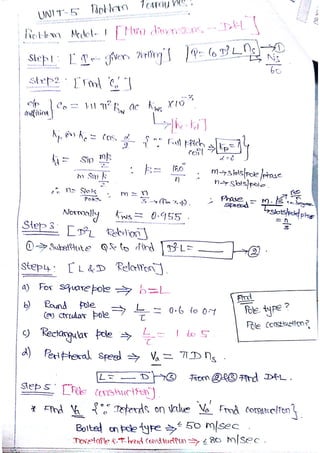 UNIT-5 Problem Formulae:
Problem Model-1 [Main dimensions -- D&L]
Step 1: [Q - given rating] Q = Co D²L ns → ①
Ns
60
Step 2: [Find 'Co']
o/p Co = 11 Bav ac Kws × 10⁻³
[Kp.Kd]
Kp or Kc = cos α/2 {∵ Full pitch coil → Kp=1
α=0
Kd = sin mβ/2
m sin β/2
: β = 180°/n
m → slots/pole/phase
n → slots/pole
∴ n = slots/poles : m = n/3 → (for 3φ).
: Phase spread = m.β
slots/pole/ph
= n/3
Normally Kws = 0.955
Step 3: [D²L Relation]
① → substitute Q & Co to find D²L = ②
Step 4: [L & D Relation]
a) For square pole ⇒ b = L
b) Round pole ⇒ L/τ = 0.6 to 0.7
(or) circular pole
c) Rectangular pole ⇒ L/τ = 1 to 5
And
Pole type?
Pole construction?
d) Peripheral speed ⇒ Va = πDns
L = D → ③ From ② & ③ Find D & L.
Step 5: [Pole construction]
* Find Va {∵ Depends on value 'Va' Find construction}
Bolted on pole type ⇒ ≤ 50 m/sec.
Dovetail & T-head construction ⇒ ≤ 80 m/sec.